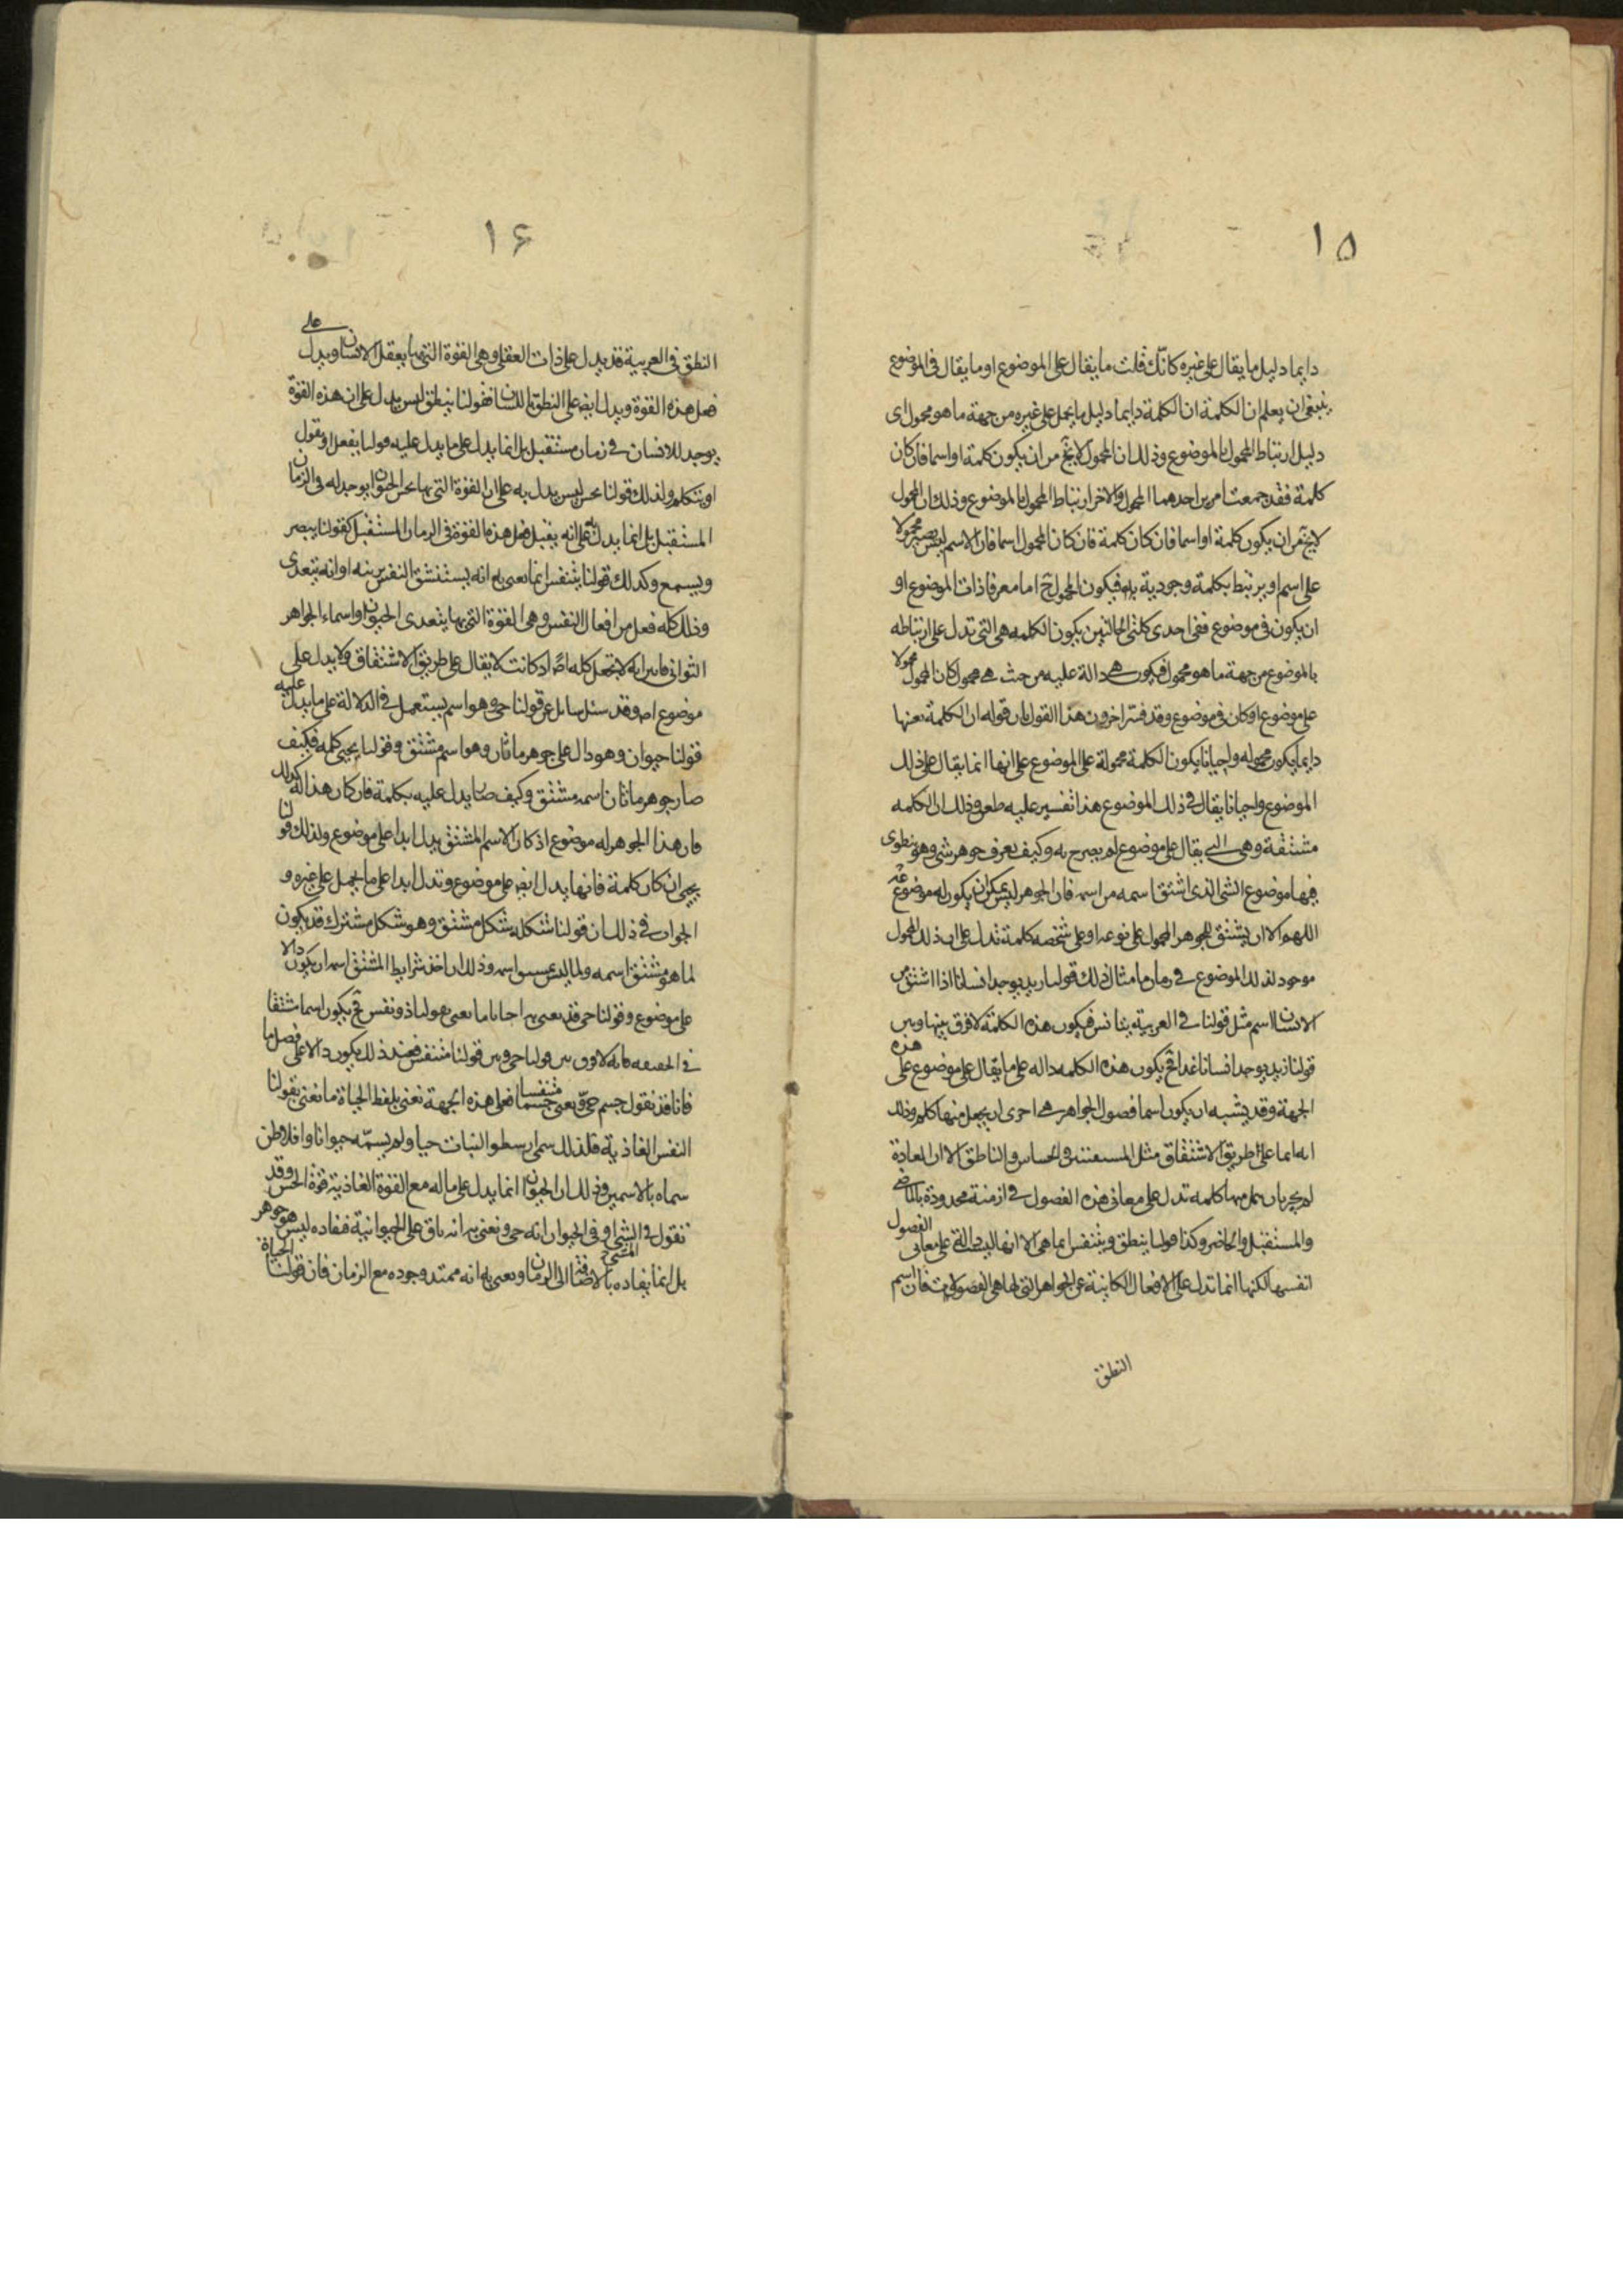 ١٥
دايما دليل ما يقال على غيره كانّك قلت ما يقال على الموضوع او ما يقال فى الموضوع
ينبغى ان يعلم ان الكلمة ان الكلمة دايما دليل ما يحمل على غيره من جهة ما هو محمول اى
دليل ارتباط المحمول بالموضوع وذلك ان المحمول لايخ من ان يكون كلمة او اسما فان كان
كلمة فقد جمعت امرين احدهما المحمول والاخر ارتباط المحمول بالموضوع وذلك ان المحمول
لايخ من ان يكون كلمة او اسما فان كان كلمة فان كان المحمول اسما فان الاسم ليس يصير محمولا
على اسم او يرتبط بكلمة وجودية به فيكون المحمول ح اما معرفا ذات الموضوع او
ان يكون فى موضوع ففى احدى كلتى الحالتين يكون الكلمه هى التى تدل على ارتباطه
بالموضوع من جهة ما هو محمول فيكون هى دالة عليه من حيث هى محمول كان المحمول محمولا
على موضوع او كان فى موضوع وقد فسّر اخرون هذا القول بان قوله ان الكلمة بعنها
دايما يكون محموله واحيانا يكون الكلمة محمولة على الموضوع على انها انما يقال على ذلك
الموضوع واحيانا يقال فى ذلك الموضوع هذا تفسير عليه طعن وذلك ان الكلمه
مشتقة وهى التى يقال على موضوع لم يصرح به وكيف يعرف جوهر شى وهو ينطوى
فيها موضوع الشى الذى اشتق اسمه من اسمه فان الجوهر ليس يمكن ان يكون له موضوع
اللهم الا ان يشتق للجوهر المحمول على نوعه او على شخصه كلمة تدل على ان ذلك المحمول
موجود لذلك الموضوع فى زمان ما مثال ذلك قولنا زيد يوجد انسانا اذا اشتق من
الانسان اسم مثل قولنا فى العربية يتانس فيكون هذه الكلمة لا فرق بينها وبين
قولنا زيد يوجد انسانا غدا فح يكون هذه الكلمه داله على ما يقال على موضوع على هذه
الجهة وقد يشبه ان يكون اسما فصول الجواهر هى احرى ان يجعل منها كلم وذلك
انها على طريق الاشتقاق مثل المتنفس والحساس والناطق الا ان العادة
لم يجر بان يعمل منها كلمه تدل على معانى هذه الفصول فى ازمنة محدودة بالماضى
والمستقبل والحاضر وكذا قولنا ينطق ويتنفس الا انها ليست دالة على معانى الفصول
انفسها لكنها انما تدل على الافعال الكاينة عن الجواهر التى لها هى الفصول فان اسم
النطق
١۶
النطق فى العربية قد يدل على ذات العقل وهى القوة التى بها يعقل الانسان ويدل على
فعل هذه القوة ويدل ايضا على النطق باللسان فقولنا ينطق ليس يدل على ان هذه القوة
يوجد للانسان فى زمان مستقبل بل انما يدل على ما يدل عليه قولنا يفعل او يقول
او يتكلم ولذلك قولنا يحس ليس يدل به على ان القوة التى بها يحس الحيوان يوجد له فى الزمان
المستقبل بل انما يدل على انه يفعل فعل هذه القوة فى الزمان المستقبل كقولنا يبصر
ويسمع وكذلك قولنا يتنفس انما يعنى به انه يستنشق النفس برئته او انه يتغذى
وذلك كله فعل من افعال النفس وهى القوة التى بها يتغذى الحيوان واسماء الجواهر
الثوانى فانه لا يجعل كلمه اصلا اذ كانت لا يقال على طريق الاشتقاق ولا يدل على
موضوع اصلا وقد سئل سايل عن قولنا حى وهو اسم يستعمل فى الدلالة على ما يدل عليه
قولنا حيوان وهو دال على جوهر ما ثان وهو اسم مشتق وقولنا يحيى كلمه فكيف
صار جوهر ما ثان اسمه مشتق وكيف صار يدل عليه بكلمة فان كان هذا كذلك
فان هذا الجوهر له موضوع اذ كان الاسم المشتق يدل ابدا على موضوع ولذلك قولنا
يحيى ان كان كلمة فانها يدل ايضا على موضوع وتدل ابدا على ما يحمل على غيره و
الجواب فى ذلك ان قولنا شكله شكل مشتق وهو شكل مشترك قد يكون
لما هو مشتق اسمه ولما ليس بمشتق اسمه وذلك ان احد شرايط المشتق اسمه ان يكون دالا
على موضوع وقولنا حى قد يعنى به احيانا ما يعنى بقولنا ذو نفس فح يكون اسما مشتقا
فى الحقيقه فانه لا فرق بين قولنا حى وبين قولنا متنفس فعند ذلك يكون دالا على فصل ما
فانا قد نقول جسم حى ونعنى جسما متنفسا فعلى هذه الجهة نعنى بلفظ الحياة ما نعنى بقولنا
النفس الغاذية فلذلك سمى ارسطو النبات حيا ولم يسمّه حيوانا وافلاطن
سماه بالاسمين وذلك ان الحيوان انما يدل على ما له مع القوة الغاذية قوة الحس وقد
نقول فى الشى او فى الحيوان انه حى ونعنى به انه باق على الحيوانية فمفاده ليس هو جوهر
بل انما يفاده بالاضافة الى الزمان ونعنى به انه ممتد وجوده مع الزمان فان قولنا الحياة